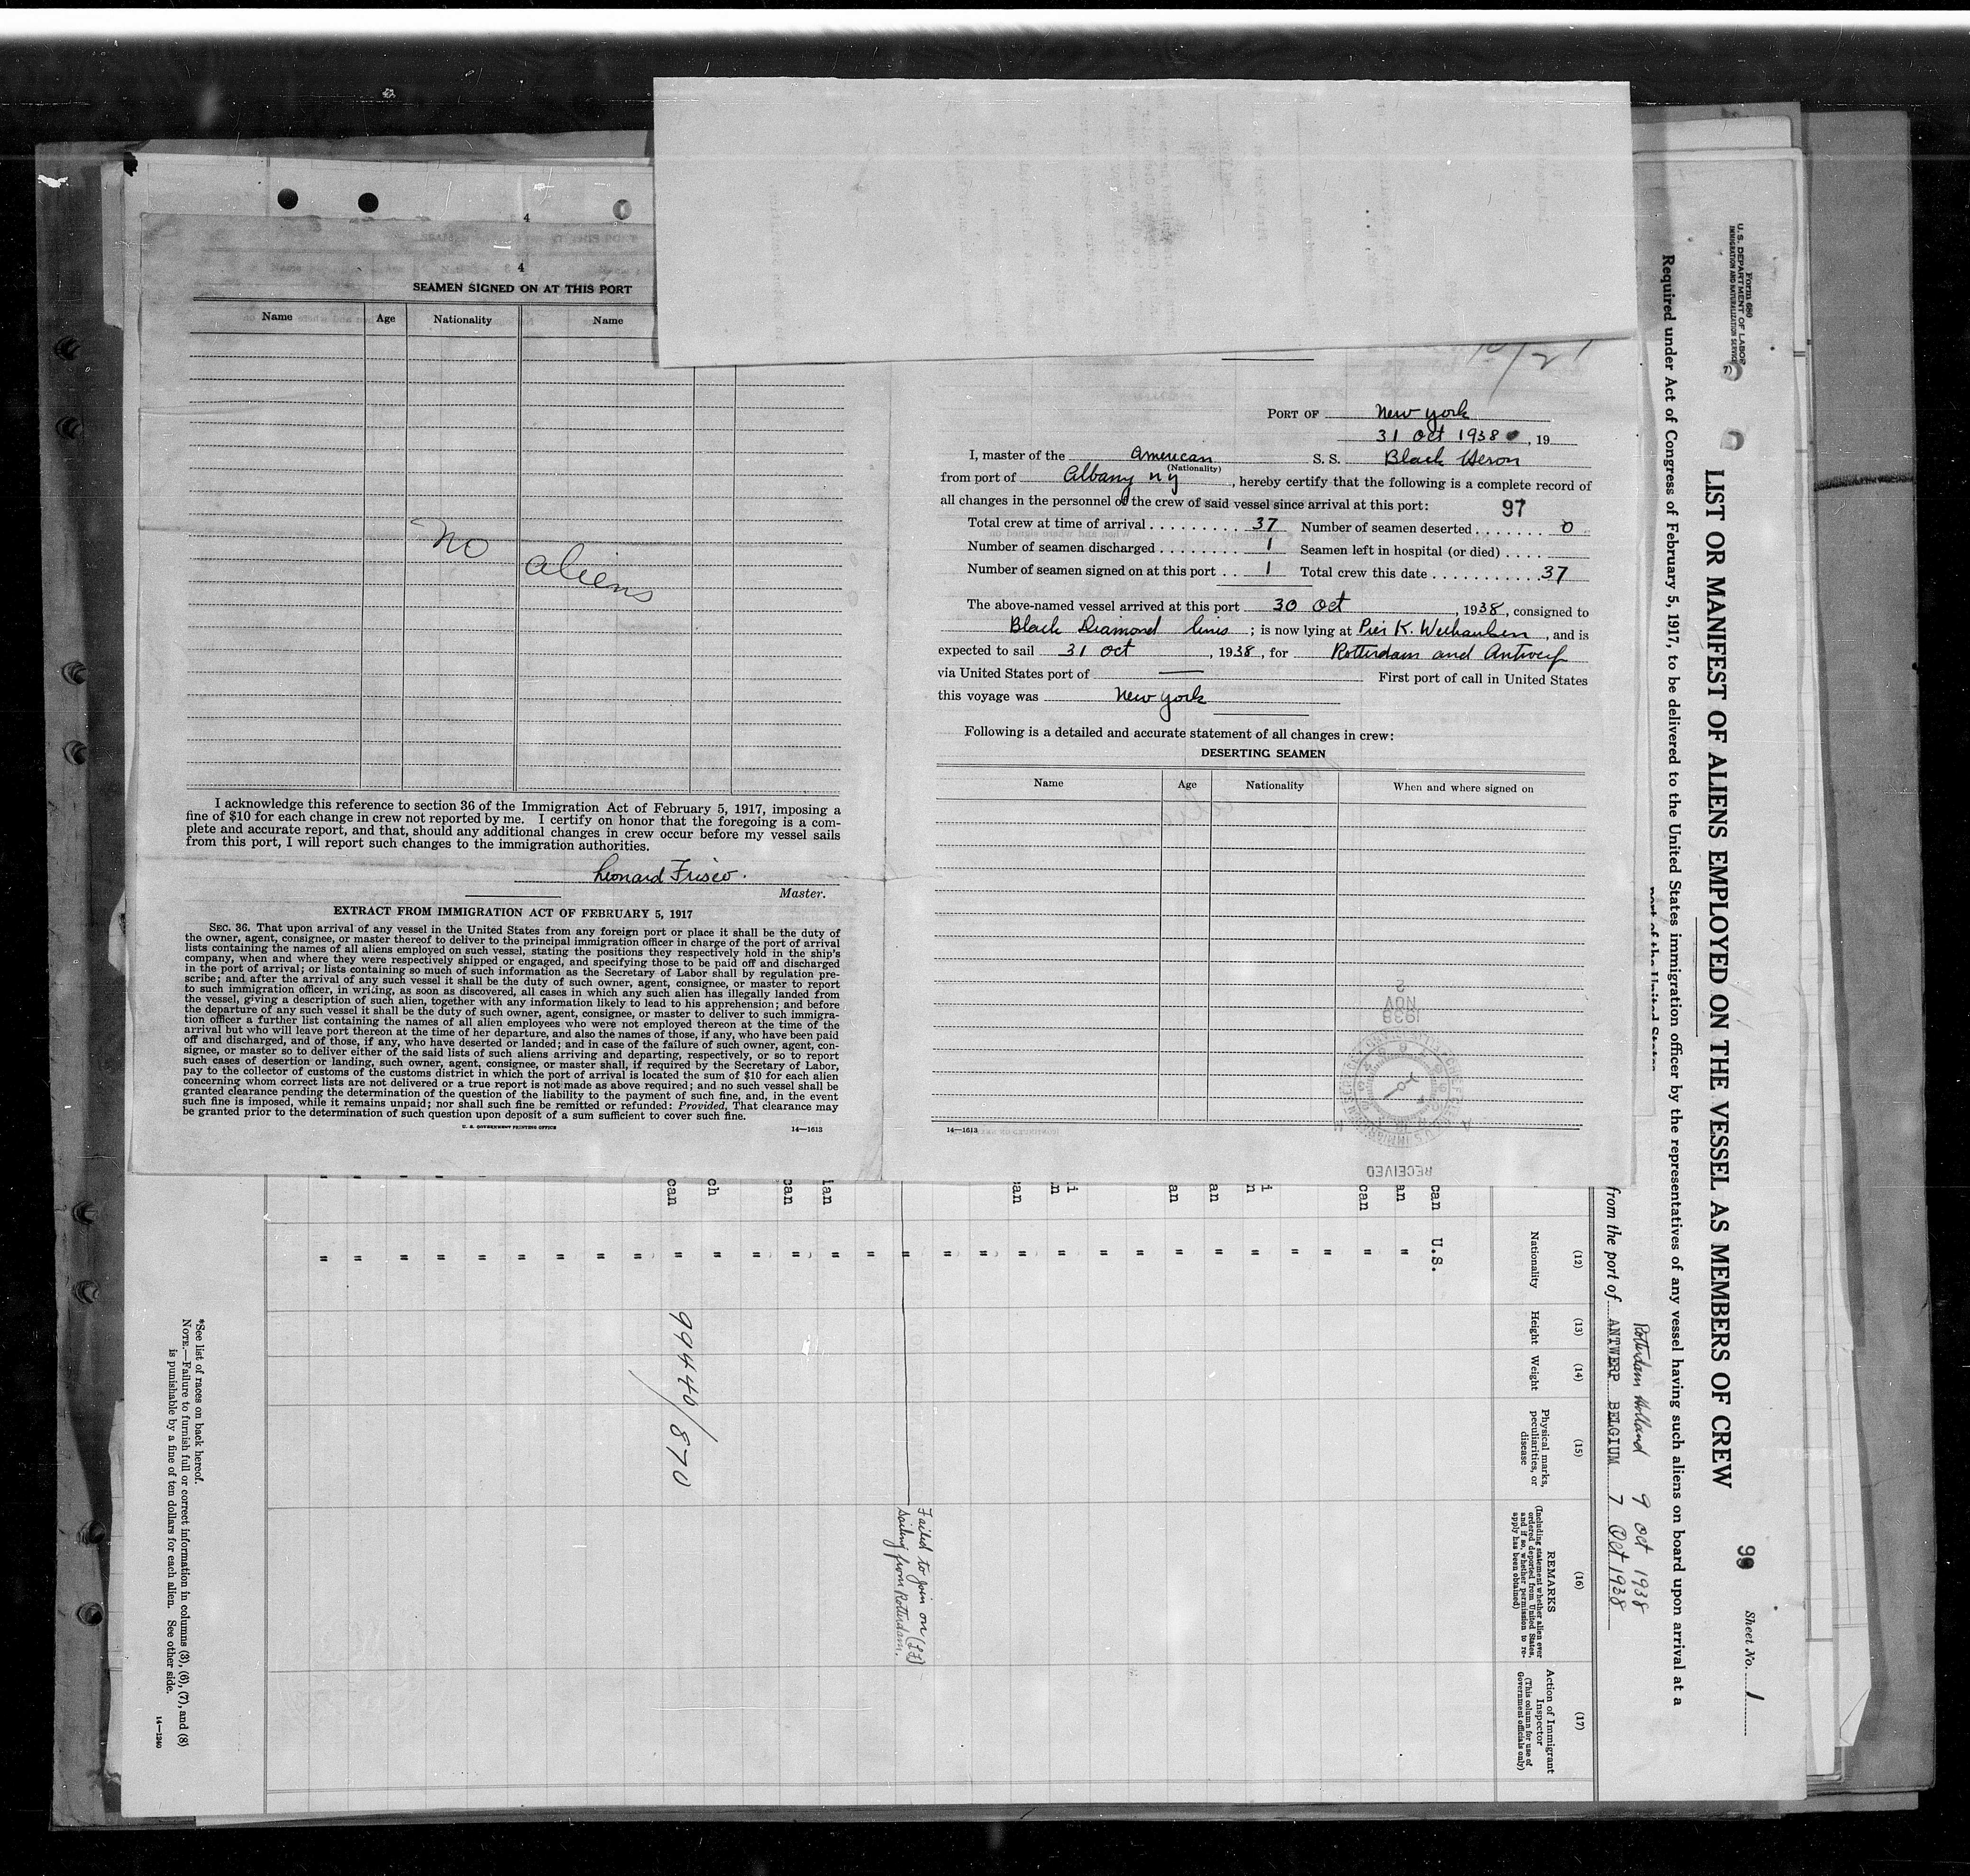 4
4
SEAMEN SIGNED ON AT THIS PORT
Name Age Nationality Name
No aliens
I acknowledge this reference to section 36 of the Immigration Act of February 5, 1917, imposing a
fine of $10 for each change in crew not reported by me. I certify on honor that the foregoing is a com-
plete and accurate report, and that, should any additional changes in crew occur before my vessel sails
from this port, I will report such changes to the immigration authorities.
Leonard Frisco.
Master.
EXTRACT FROM IMMIGRATION ACT OF FEBRUARY 5, 1917
SEC. 36. That upon arrival of any vessel in the United States from any foreign port or place it shall be the duty of
the owner, agent, consignee, or master thereof to deliver to the principal immigration officer in charge of the port of arrival
lists containing the names of all aliens employed on such vessel, stating the positions they respectively hold in the ship's
company, when and where they were respectively shipped or engaged, and specifying those to be paid off and discharged
in the port of arrival; or lists containing so much of such information as the Secretary of Labor shall by regulation pre-
scribe; and after the arrival of any such vessel it shall be the duty of such owner, agent, consignee, or master to report
to such immigration officer, in writing, as soon as discovered, all cases in which any such alien has illegally landed from
the vessel, giving a description of such alien, together with any information likely to lead to his apprehension; and before
the departure of any such vessel it shall be the duty of such owner, agent, consignee, or master to deliver to such immigra-
tion officer a further list containing the names of all alien employees who were not employed thereon at the time of the
arrival but who will leave port thereon at the time of her departure, and also the names of those, if any, who have been paid
off and discharged, and of those, if any, who have deserted or landed; and in case of the failure of such owner, agent, con-
signee, or master so to deliver either of the said lists of such aliens arriving and departing, respectively, or so to report
such cases of desertion or landing, such owner, agent, consignee, or master shall, if required by the Secretary of Labor,
pay to the collector of customs of the customs district in which the port of arrival is located the sum of $10 for each alien
concerning whom correct lists are not delivered or a true report is not made as above required; and no such vessel shall be
granted clearance pending the determination of the question of the liability to the payment of such fine, and, in the event
such fine is imposed, while it remains unpaid; nor shall such fine be remitted or refunded: Provided, That clearance may
be granted prior to the determination of such question upon deposit of a sum sufficient to cover such fine.
U. S. GOVERNMENT PRINTING OFFICE 14—1613
10/21
PORT OF New york
31 Oct 1938, 19
I, master of the American S. S. Black Heron
(Nationality)
from port of Albany ny, hereby certify that the following is a complete record of
all changes in the personnel of the crew of said vessel since arrival at this port:
97
Total crew at time of arrival . . . . . . . . . 37 Number of seamen deserted . . . . . . . 0
Number of seamen discharged . . . . . . . . 1 Seamen left in hospital (or died) . . . .
Number of seamen signed on at this port . . 1 Total crew this date . . . . . . . . . . . 37
The above-named vessel arrived at this port 30 Oct, 1938, consigned to
Black Diamond lines; is now lying at Pier K. Weehauken, and is
expected to sail 31 oct, 1938, for Rotterdam and Antwerp
via United States port of — First port of call in United States
this voyage was New york
Following is a detailed and accurate statement of all changes in crew:
DESERTING SEAMEN
Name Age Nationality When and where signed on
14—1613
RECEIVED
Form 680
U. S. DEPARTMENT OF LABOR
IMMIGRATION AND NATURALIZATION SERVICE
LIST OR MANIFEST OF ALIENS EMPLOYED ON THE VESSEL AS MEMBERS OF CREW
99
Sheet No. 1
Required under Act of Congress of February 5, 1917, to be delivered to the United States immigration officer by the representatives of any vessel having such aliens on board upon arrival at a
port of the United States
Rotterdam Holland 9 Oct 1938
from the port of ANTWERP BELGIUM 7 Oct 1938
(12) (13) (14) (15) (16) (17)
Nationality
Height
Weight
Physical marks, peculiarities, or disease
REMARKS
(Including statement whether alien ever ordered deported from United States, and if so, whether permission to reapply has been obtained)
Action of Immigrant Inspector
(This column for use of Government officials only)
can U.S.
an "
can "
Failed to join on (LF)
sailing from Rotterdam.
99440/870
*See list of races on back hereof.
NOTE.—Failure to furnish full or correct information in columns (3), (6), (7), and (8)
is punishable by a fine of ten dollars for each alien. See other side.
14—1240